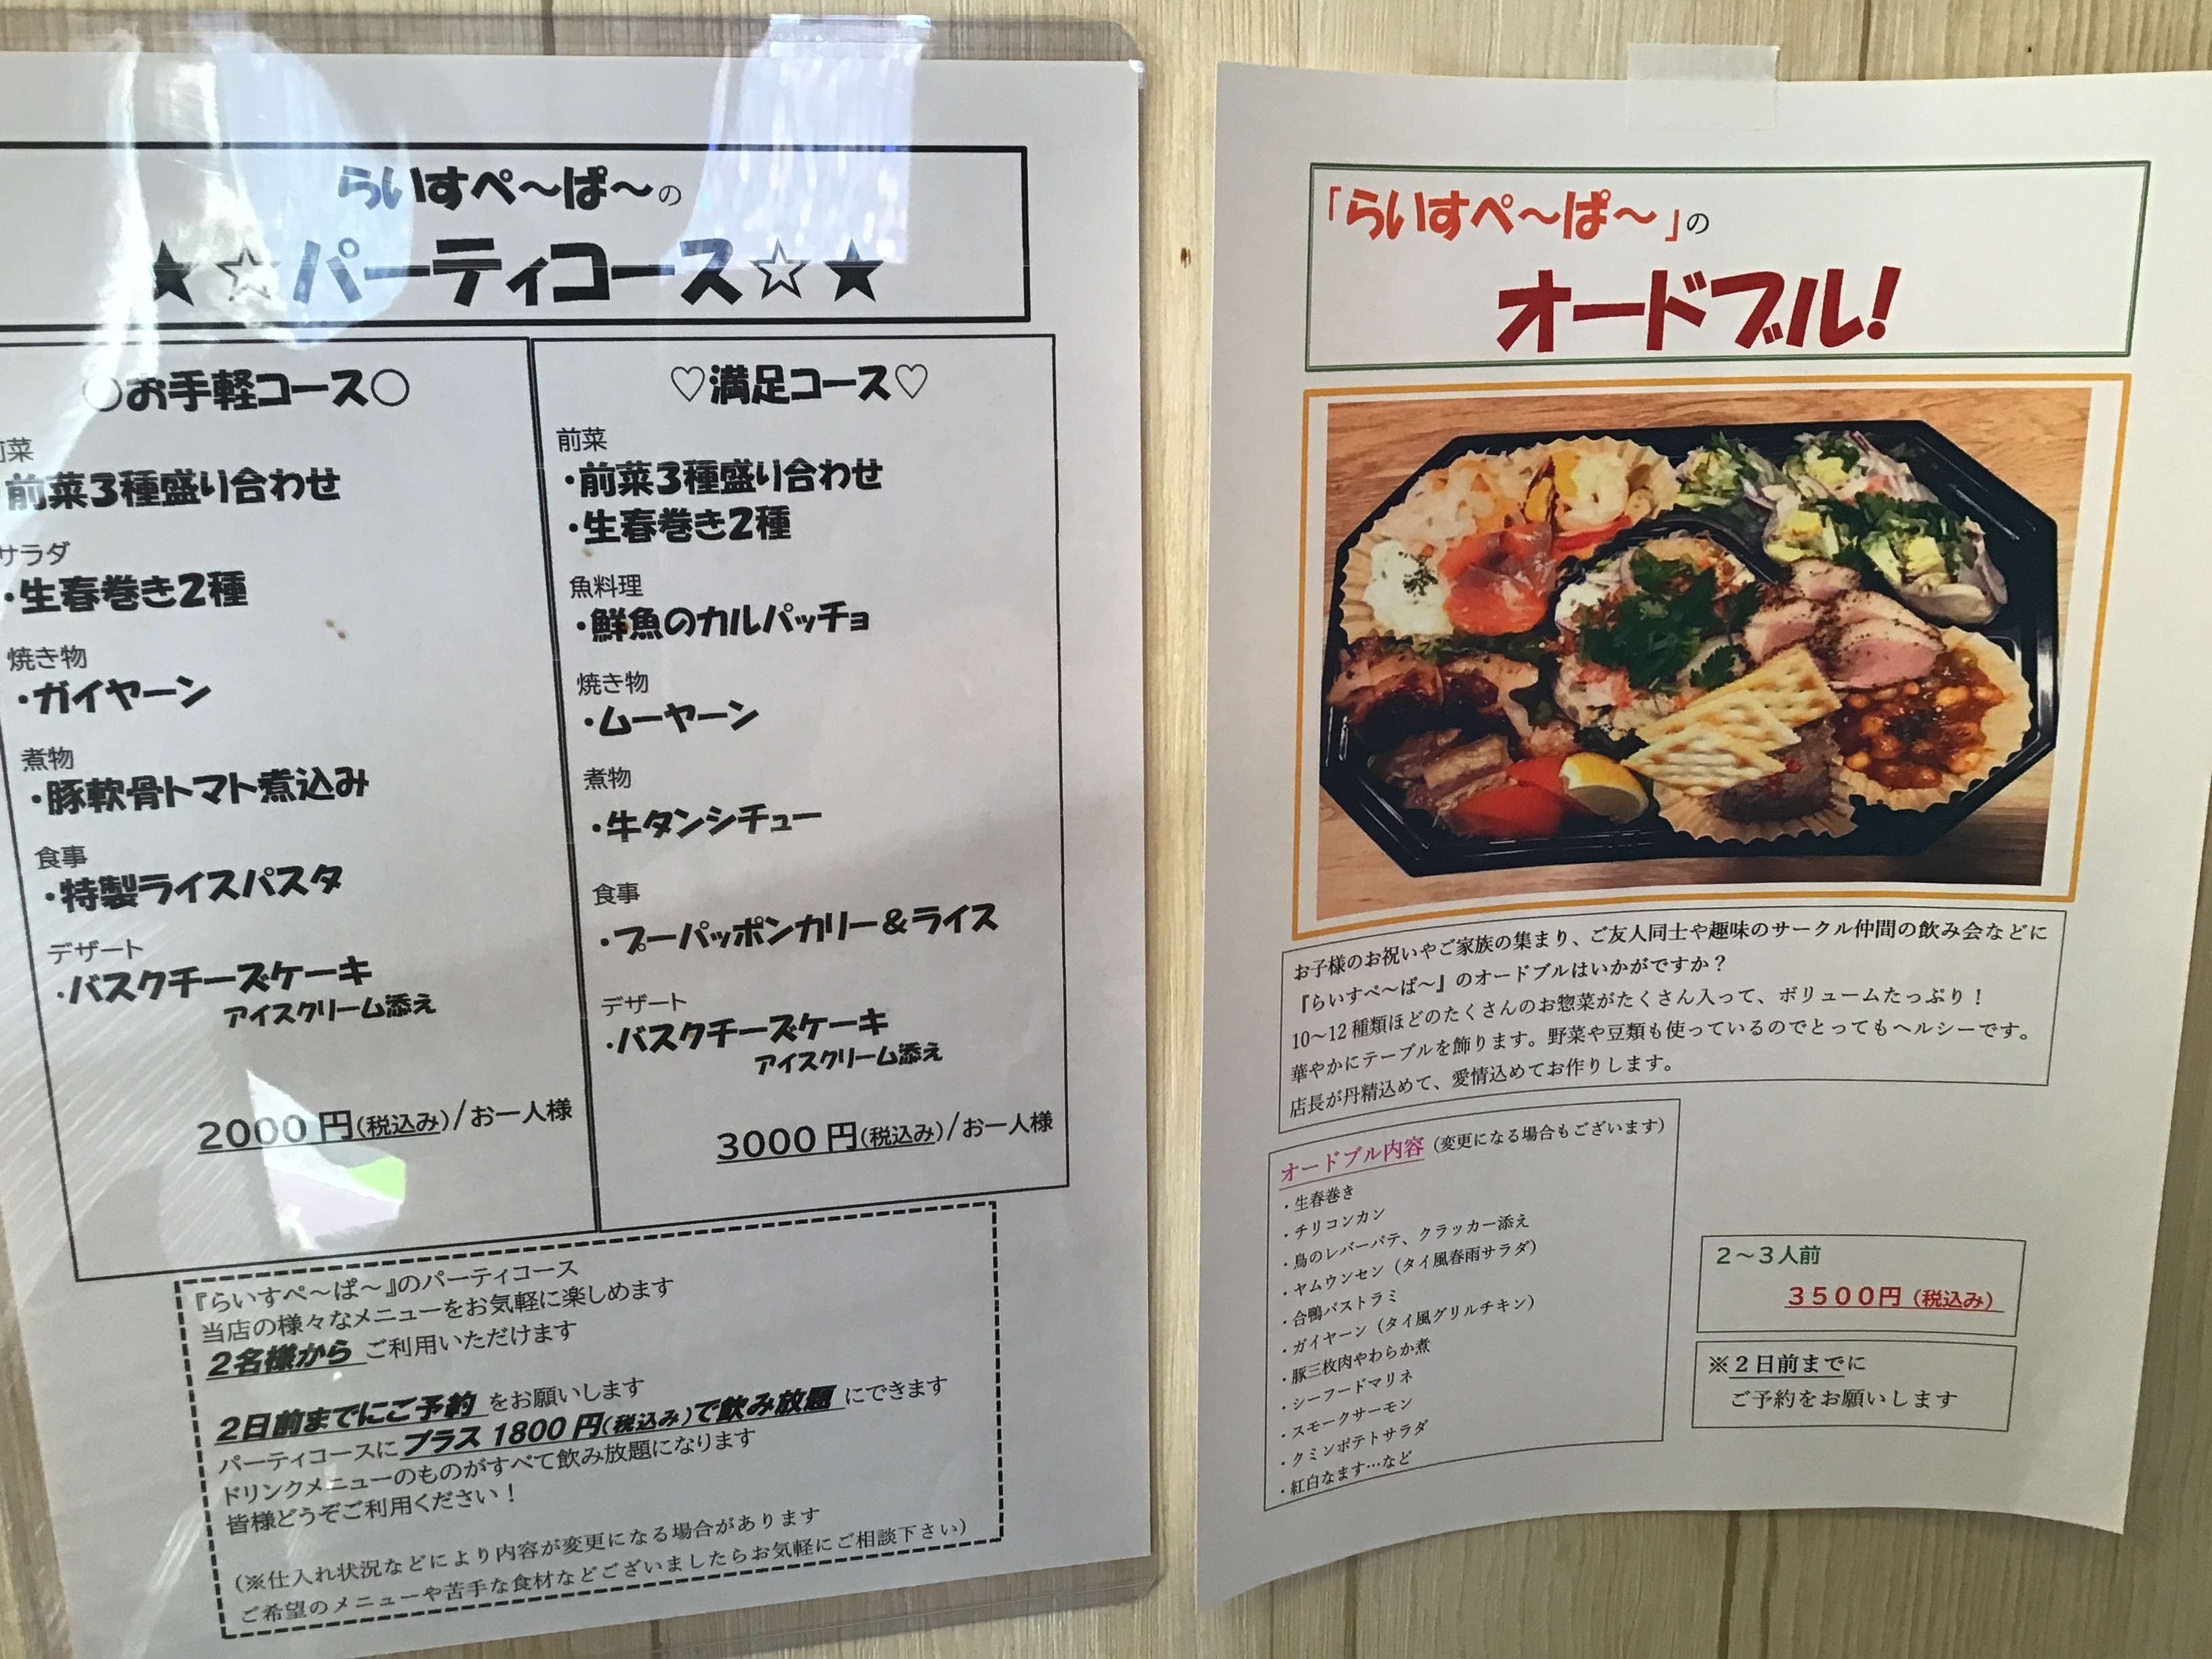 らいすぺ～ぱ～の
★☆パーティコース☆★
○お手軽コース○
前菜
・前菜3種盛り合わせ
サラダ
・生春巻き2種
焼き物
・ガイヤーン
煮物
・豚軟骨トマト煮込み
食事
・特製ライスパスタ
デザート
・バスクチーズケーキ
アイスクリーム添え
2000円(税込み)/お一人様
♡満足コース♡
前菜
・前菜3種盛り合わせ
・生春巻き2種
魚料理
・鮮魚のカルパッチョ
焼き物
・ムーヤーン
煮物
・牛タンシチュー
食事
・プーパッポンカリー＆ライス
デザート
・バスクチーズケーキ
アイスクリーム添え
3000円(税込み)/お一人様
『らいすぺ～ぱ～』のパーティコース
当店の様々なメニューをお気軽に楽しめます
2名様から ご利用いただけます
2日前までにご予約 をお願いします
パーティコースにプラス1800円(税込み)で飲み放題 にできます
ドリンクメニューのものがすべて飲み放題になります
皆様どうぞご利用ください！
(※仕入れ状況などにより内容が変更になる場合があります
ご希望のメニューや苦手な食材などございましたらお気軽にご相談下さい)
「らいすぺ～ぱ～」の
オードブル!
お子様のお祝いやご家族の集まり、ご友人同士や趣味のサークル仲間の飲み会などに
『らいすぺ～ぱ～』のオードブルはいかがですか？
10～12種類ほどのたくさんのお惣菜がたくさん入って、ボリュームたっぷり！
華やかにテーブルを飾ります。野菜や豆類も使っているのでとってもヘルシーです。
店長が丹精込めて、愛情込めてお作りします。
オードブル内容（変更になる場合もございます）
・生春巻き
・チリコンカン
・鳥のレバーパテ、クラッカー添え
・ヤムウンセン（タイ風春雨サラダ）
・合鴨パストラミ
・ガイヤーン（タイ風グリルチキン）
・豚三枚肉やわらか煮
・シーフードマリネ
・スモークサーモン
・クミンポテトサラダ
・紅白なます…など
2～3人前
3500円（税込み）
※2日前までに
ご予約をお願いします